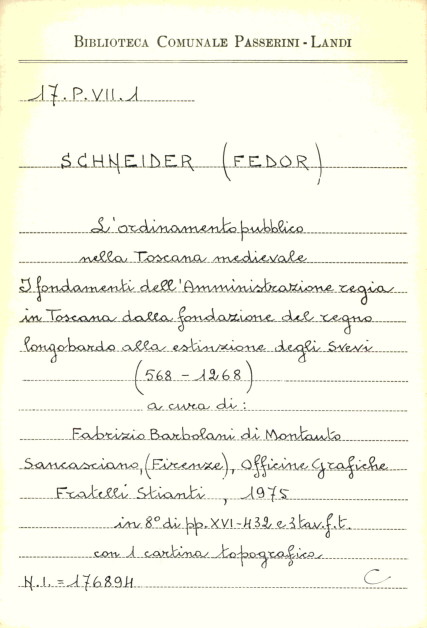 BIBLIOTECA COMUNALE PASSERINI - LANDI
17.P.VII.1
SCHNEIDER (FEDOR)
L'ordinamento pubblico
nella Toscana medievale
I fondamenti dell'Amministrazione regia
in Toscana dalla fondazione del regno
longobardo alla estinzione degli Svevi
(568 - 1268)
a cura di:
Fabrizio Barbolani di Montauto
Sancasciano, (Firenze), Officine Grafiche
Fratelli Stianti, 1975
in 8° di pp. XVI-432 e 3 tav. f.t.
con 1 cartina topografica
N.I. = 176894
C